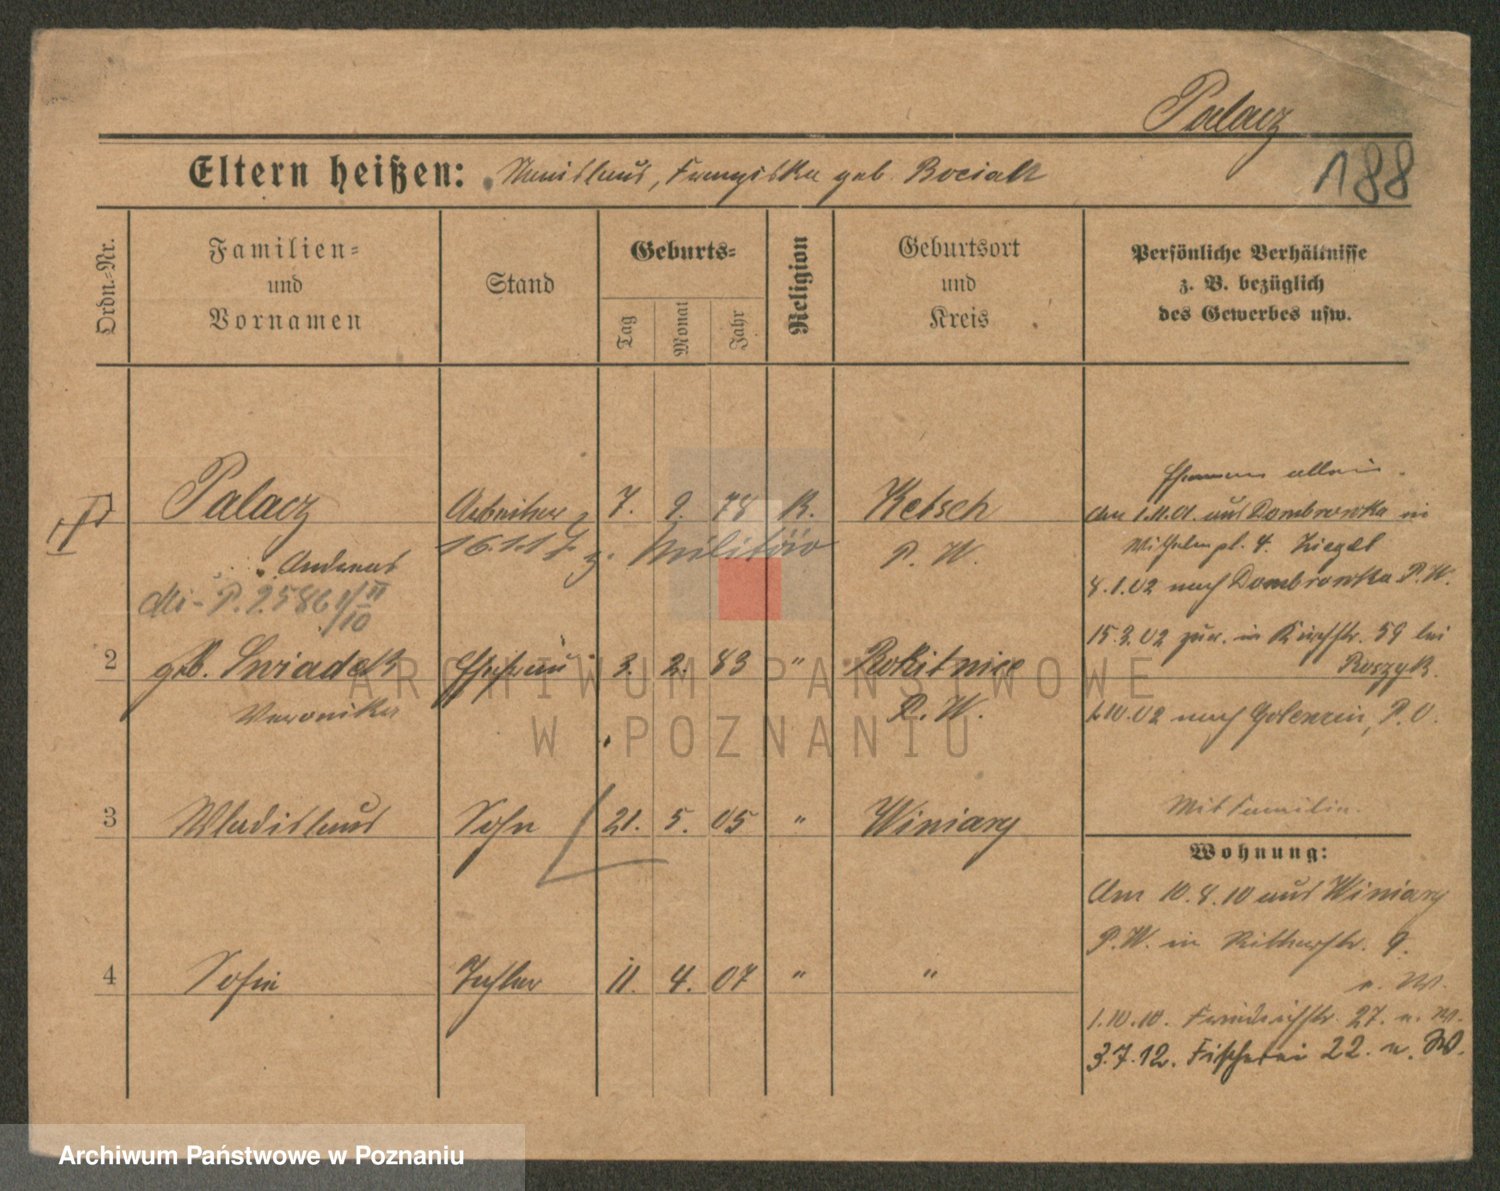 Palacz
188
Eltern heißen: Stanislaus, Franziska geb. Bociak
Ordn.-Nr.
Familien-
und
Vornamen
Stand
Geburts-
Tag
Monat
Jahr
Religion
Geburtsort
und
Kreis
Persönliche Verhältnisse
z. B. bezüglich
des Gewerbes usw.
Palacz
Arbeiter
7. 9. 78
K.
Ketsch
Andreas
16.1.17 z. Militär
P. W.
P. 2586
2
geb. Swiadek
Ehefrau
3. 2. 83
"
Rokitnice
Veronika
P. W.
3
Wladislaus
Sohn
21. 5. 05
"
Winiary
4
Sofie
Tochter
11. 4. 07
"
"
allein.
aus Dombrowka in
Wilhelmpl. 4.
8.1.02 nach Dombrowka P. W.
15.3.02 zur. in Kirchstr. 59 bei
Roszyk.
1.10.02 nach P. O.
Mit Familie.
Wohnung:
Am 10.8.10 aus Winiary
P. W. in Ritterstr. 9.
1.10.10. Friedrichstr. 27.
3.7.12. Fischerei 22.
ARCHIWUM PAŃSTWOWE
W POZNANIU
Archiwum Państwowe w Poznaniu